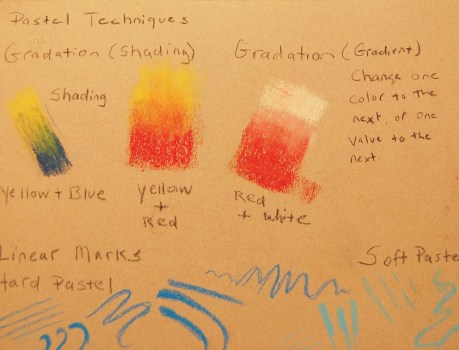 Pastel Techniques
Gradation (Shading)
Gradation (Gradient)
Shading
Change one
color to the
next, or one
value to the
next.
Yellow + Blue
Yellow
+
Red
Red
+ white
Linear Marks
Hard Pastel
Soft Paste